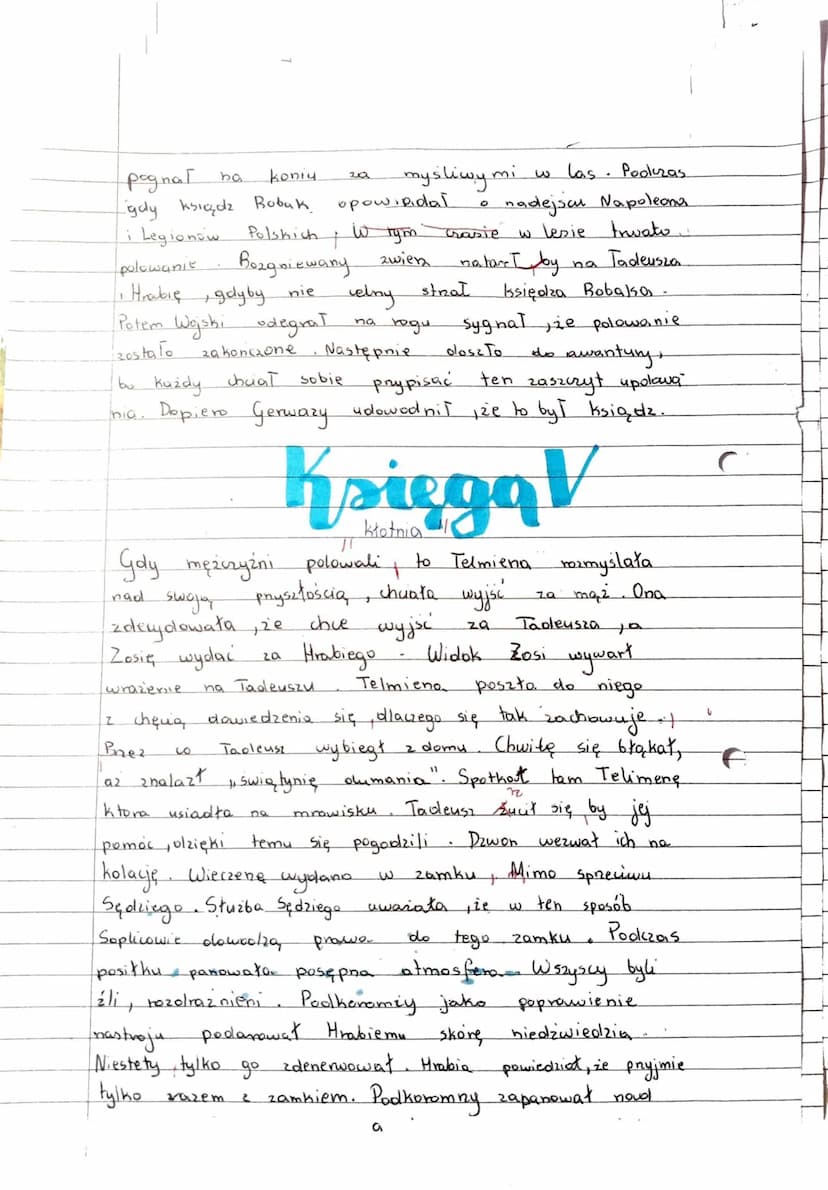 pognał na koniu za myśliwymi w las. Podczas
gdy ksiądz Robak opowiadał o nadejściu Napoleona
i Legionów Polskich, W tym czasie w lesie trwało
polowanie. Rozgniewany zwierz natarł by na Tadeusza
i Hrabię, gdyby nie celny strzał księdza Robaka.
Potem Wojski odegrał na rogu sygnał, że polowanie
zostało zakończone. Następnie doszło do awantury,
bo każdy chciał sobie przypisać ten zaszczyt upolowa
nia. Dopiero Gerwazy udowodnił, że to był ksiądz.
Księga V
"kłótnia"
Gdy mężczyźni polowali, to Telmiena rozmyślała
nad swoją przyszłością, chciała wyjść za mąż. Ona
zdecydowała, że chce wyjść za Tadeusza, a
Zosię wydać za Hrabiego. Widok Zosi wywarł
wrażenie na Tadeuszu. Telmiena poszła do niego
z chęcią dowiedzenia się, dlaczego się tak zachowuje.
Przez co Tadeusz wybiegł z domu. Chwilę się błąkał,
aż znalazł „świątynię dumania". Spotkał tam Telimenę
która usiadła na mrowisku. Tadeusz rzucił się by jej
pomóc, dzięki temu się pogodzili. Dzwon wezwał ich na
kolację. Wieczerzę wydano w zamku, Mimo sprzeciwu
Sędziego. Służba Sędziego uważała, że w ten sposób
Soplicowie dowodzą prawa do tego zamku. Podczas
posiłku panowała posępna atmosfera. Wszyscy byli
źli, rozdrażnieni. Podkoromży jako poprawienie
nastroju podarował Hrabiemu skórę niedźwiedzia.
Niestety tylko go zdenerwował. Hrabia powiedział, że przyjmie
tylko razem z zamkiem. Podkoromny zapanował nad
a